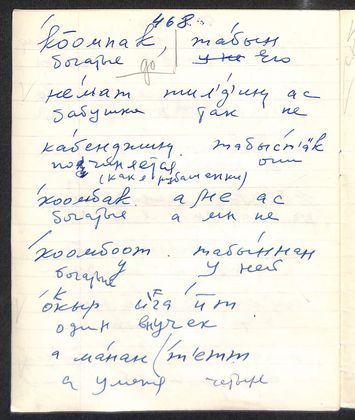 468.
ко̄омпак, табын
богатые до у не его
не́мат тилʼдʼиӊ ас
бабушка так не
ка́бенджиӊ. табыстʼак
подчиняется они
(как я рубашенки)
коомбак. а не ас
богатые а мы не
коомбоот. табыннан
богатые у ней
о́кыр ига́ ӣт
один внучек
а ма́нан тʼетт
а у меня четыре